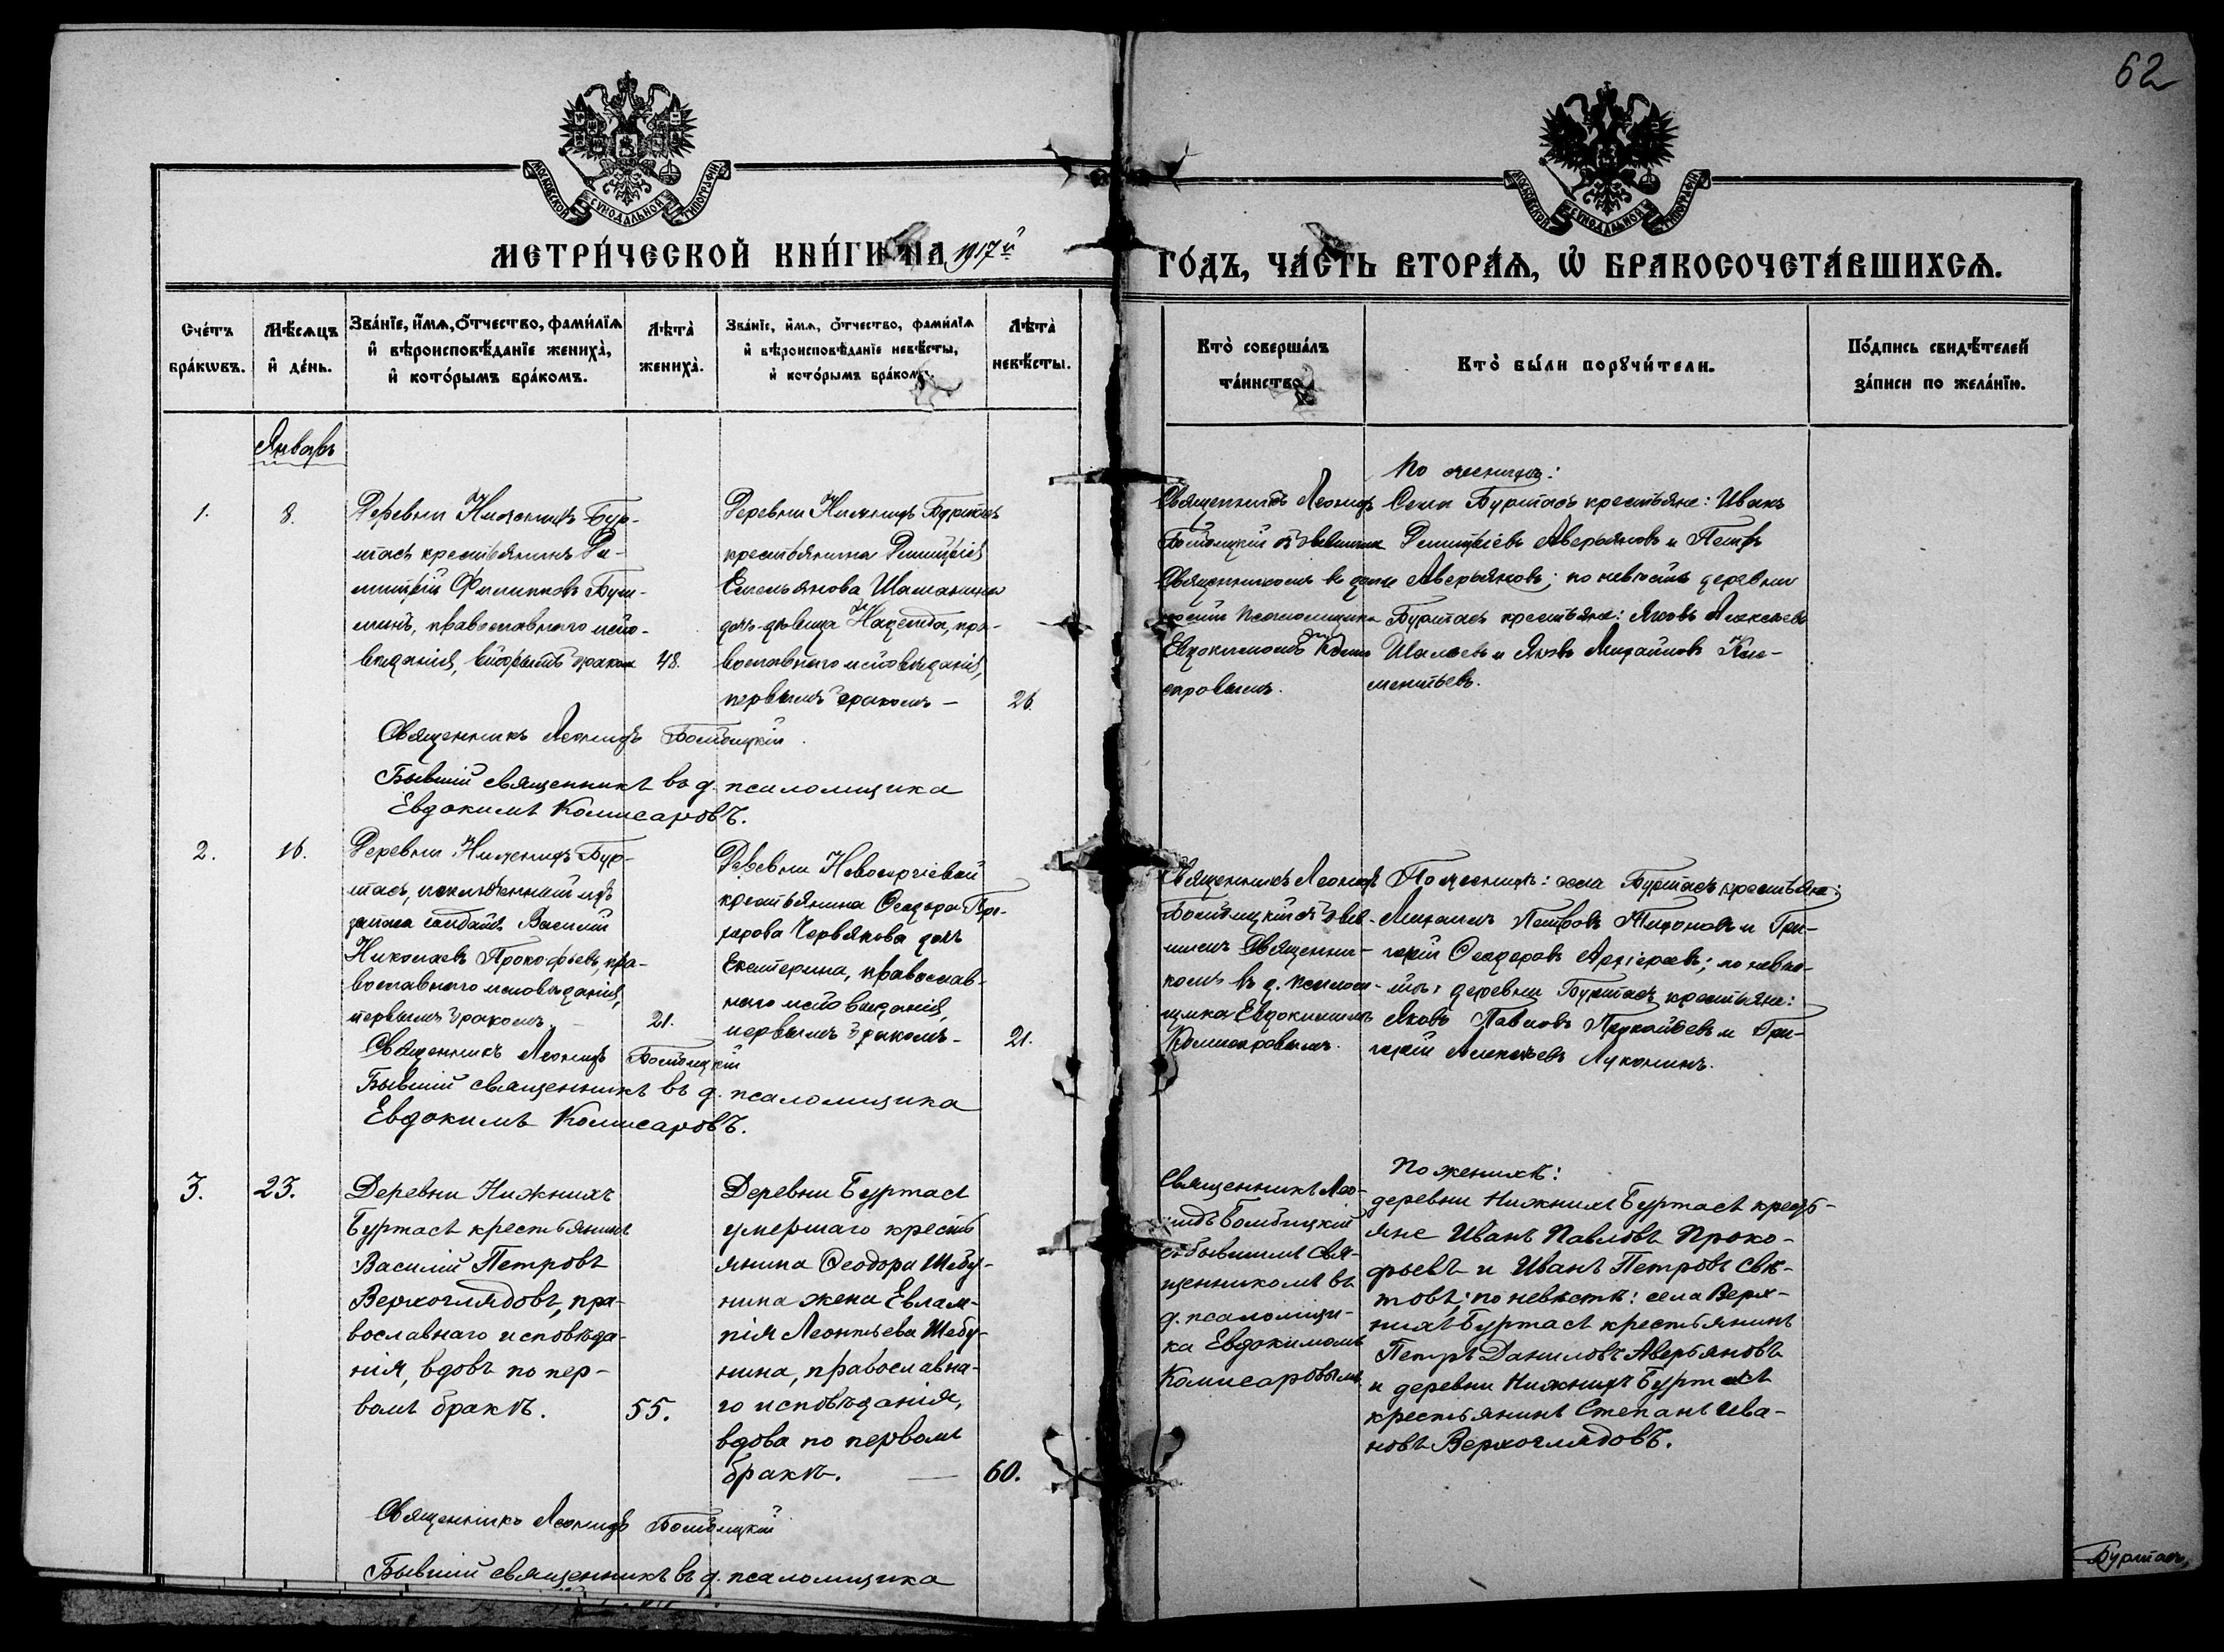 62
МОСКОВСКОЙ СѴНОДАЛЬНОЙ ТИПОГРАФІИ.
МОСКОВСКОЙ СѴНОДАЛЬНОЙ ТИПОГРАФІИ.
МЕТРИ́ЧЕСКОЙ КНИ́ГИ НА 1917й
ГО́ДЪ, ЧА́СТЬ ВТОРА́Ѧ, Ѽ БРАКОСОЧЕТА́ВШИХСѦ.
Сче́тъ бра́кѡвъ.
Мѣ́сѧцъ и҆ де́нь.
Зва́нїе, и҆́мѧ, ѻ҆́тчество, фами́лїѧ
и҆ вѣроисповѣ́данїе жениха̀,
и҆ кото́рымъ бра́комъ.
Лѣта̀ жениха̀.
Зва́нїе, и҆́мѧ, ѻ҆́тчество, фами́лїѧ
и҆ вѣроисповѣ́данїе невѣ́сты,
и҆ кото́рымъ бра́комъ.
Лѣта̀ невѣ́сты.
Кто̀ соверша́лъ
та́инство.
Кто̀ бы́ли порꙋчи́тели.
По́дпись свидѣ́телей
за́писи по жела́нїю.
Январь
1.
8.
Деревни Нижнихъ Бур-
тасъ крестьянинъ Ди-
митрій Филипповъ
православнаго испо-
вѣданія, вторымъ бракомъ
48.
Деревни Нижнихъ Буртасъ
крестьянина Димитрія
Емельянова Шаманина
дочь-дѣвица Надежда, пра-
вославнаго исповѣданія,
первымъ бракомъ —
26.
Священникъ Леонидъ
съ бывшимъ
Священникомъ въ долж-
ности псаломщика
Евдокимомъ Коми-
саровымъ.
По женихѣ:
Села Буртасъ крестьяне: Иванъ
Димитріевъ Аверьяновъ и Петръ
Аверьяновъ; по невѣстѣ деревни
Буртасъ крестьяне: Яковъ Алексѣевъ
и Яковъ Михайловъ Кле-
ментьевъ.
Священникъ Леонидъ
Бывшій священникъ въ д. псаломщика
Евдокимъ Комисаровъ.
2.
16.
Деревни Нижнихъ Бур-
тасъ, исключенный изъ
запаса солдатъ Василій
Николаевъ Прокофьевъ, пра-
вославнаго исповѣданія,
первымъ бракомъ —
21.
Деревни
крестьянина Ѳеодора
Червякова дочь
Екатерина, православ-
наго исповѣданія,
первымъ бракомъ —
21.
Священникъ Леонидъ
съ быв-
шимъ Священни-
комъ въ д. псалом-
щика Евдокимомъ
Комисаровымъ.
По женихѣ: села Буртасъ крестьяне:
Михаилъ Петровъ и Гри-
горій Ѳеодоровъ по невѣ-
стѣ: деревни Буртасъ крестьяне:
Яковъ Павловъ и Гри-
горій Алексѣевъ Луконинъ.
Священникъ Леонидъ
Бывшій священникъ въ д. псаломщика
Евдокимъ Комисаровъ.
3.
23.
Деревни Нижнихъ
Буртасъ крестьянинъ
Василій Петровъ
Верхоглядовъ, пра-
вославнаго исповѣда-
нія, вдовъ по пер-
вомъ бракѣ.
55.
Деревни Буртасъ
умершаго кресть
янина Ѳеодора Шебу-
нина жена Евлам-
пія Леонтьева Шебу-
нина, православна-
го исповѣданія,
вдова по первомъ
бракѣ. —
60.
Священникъ Лео-
нидъ
съ бывшимъ свя-
щенникомъ въ
д. псаломщи-
ка Евдокимомъ
Комисаровымъ.
По женихѣ:
деревни Нижнихъ Буртасъ кресть-
яне Иванъ Павловъ Проко-
фьевъ и Иванъ Петровъ Свѣ-
товъ; по невѣстѣ: села Верх-
нихъ Буртасъ крестьянинъ
Петръ Даниловъ Аверьяновъ
и деревни Нижнихъ Буртасъ
крестьянинъ Степанъ Ива-
новъ Верхоглядовъ.
Священникъ Леонидъ
Бывшій священникъ въ д. псаломщика